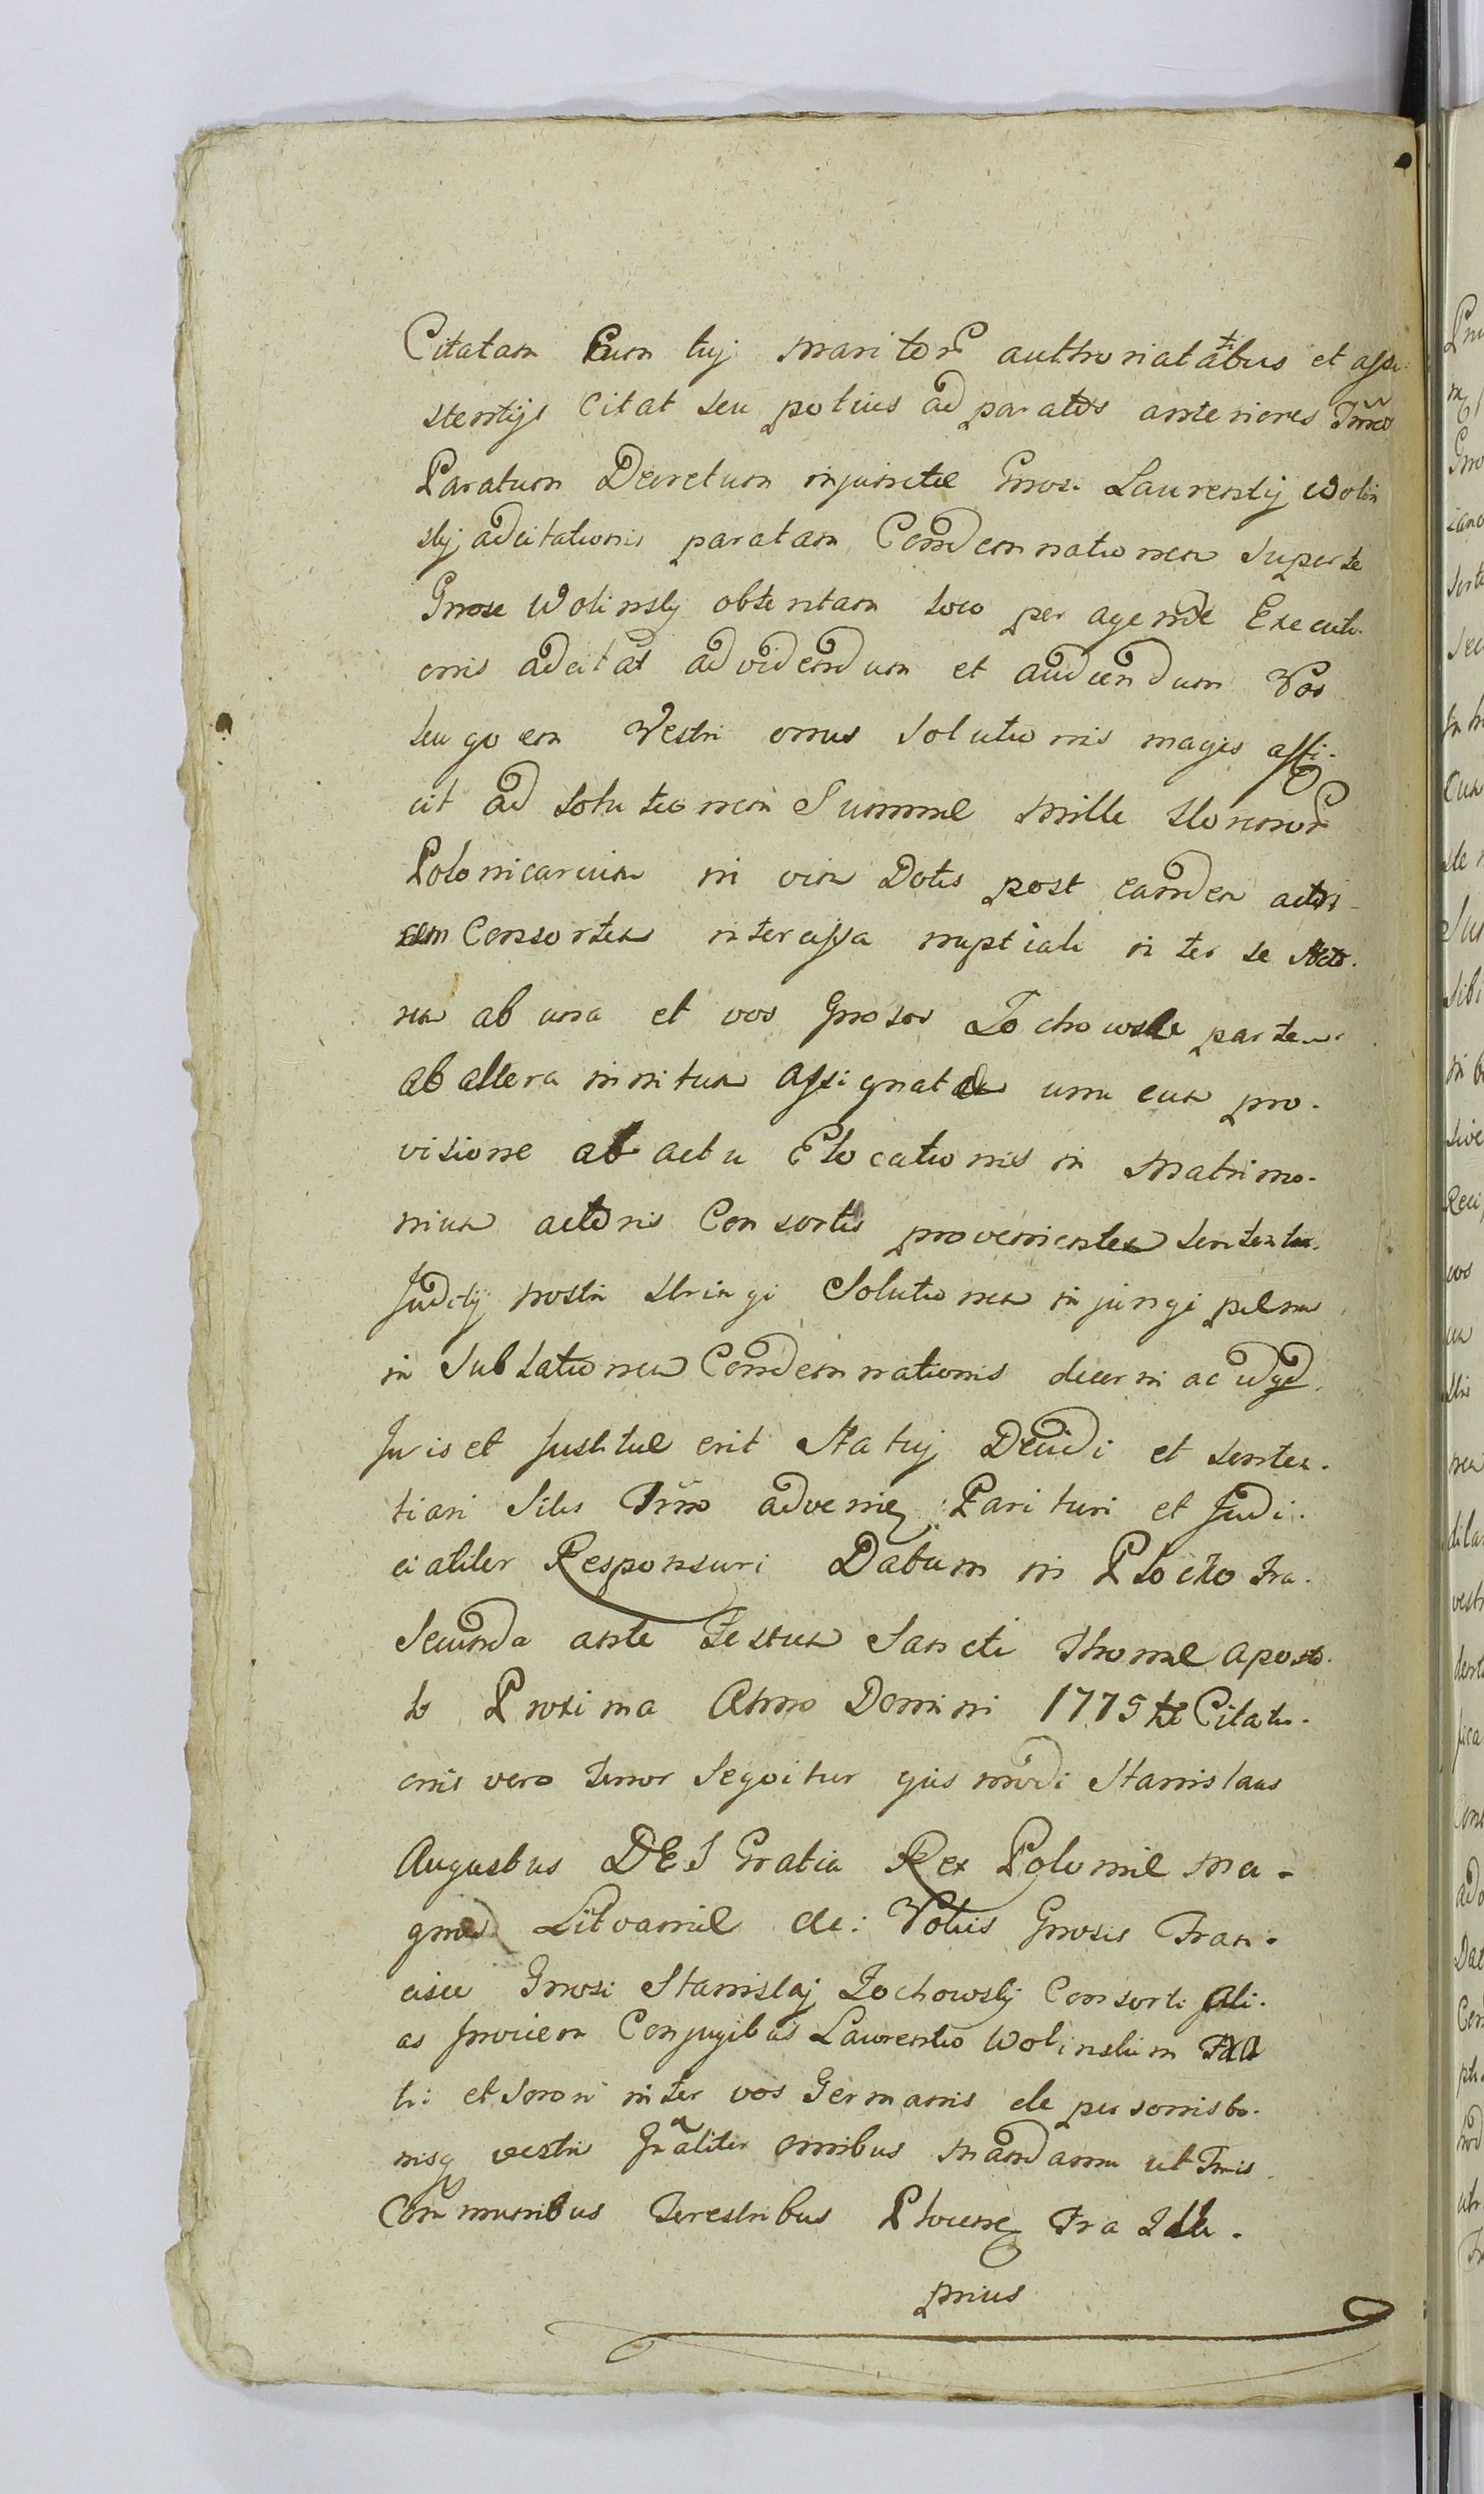 Citatam Cum tuj maritor authoriatatibus et assi-
stentijs Citat seu potius ad paratas anteriores Tmos
Paratum Decretum injunctæ Gnosi Laurentij Wolin
skj adcitationis paratam Condemnationem super te
Gnose Wolinskj obtentam loco peragendæ Executi-
onis adcitat ad videndum et audiendum Vos
seu quem Vestri onus solutionis magis affi-
cit ad solutionem Summæ mille flonenor
Polonicarum in vim Dotis post eandem actri-
cem Consortem intercissa nuptiali inter se Acto-
rem ab una et vos Gnosos Zochowskie partem
ab altera initum assignatæ unu cum pro-
visione ab actu Elocationis in Matrimo-
nium actoris Consortis provenientem sententia
Judicij nostri stringi Solutionem injungi pænu
in Sublationem Condemnationis decerni ac idqd
Juris et Justitiæ erit Statuj Decidi et senten-
tiari Sitis Trmo advenien Parituri et Judi-
cialiter Responsuri Datum in Plocko Fra
Secunda ante Festum Sancti Thomæ Aposto-
li Proxima Anno Domini 1775 tæ Citati-
onis vero tenor Seqvitur ejusmodi Stanislaus
Augustus DEI Gratia Rex Poloniæ Ma-
gnus Litvaniæ &c: Vobis Gnosis Fran-
cisce Gnosi Stanislaj Zochowskj Consorti Ali-
as invicem Conjugibus Laurentio Wolinskim Fra
tri et Sorori inter vos Germanis de personis bo-
nisq vestri Gnaliter omnibus Mandamu ut Tmis
Communibus Terestribus Plocen Fra 2da
prius